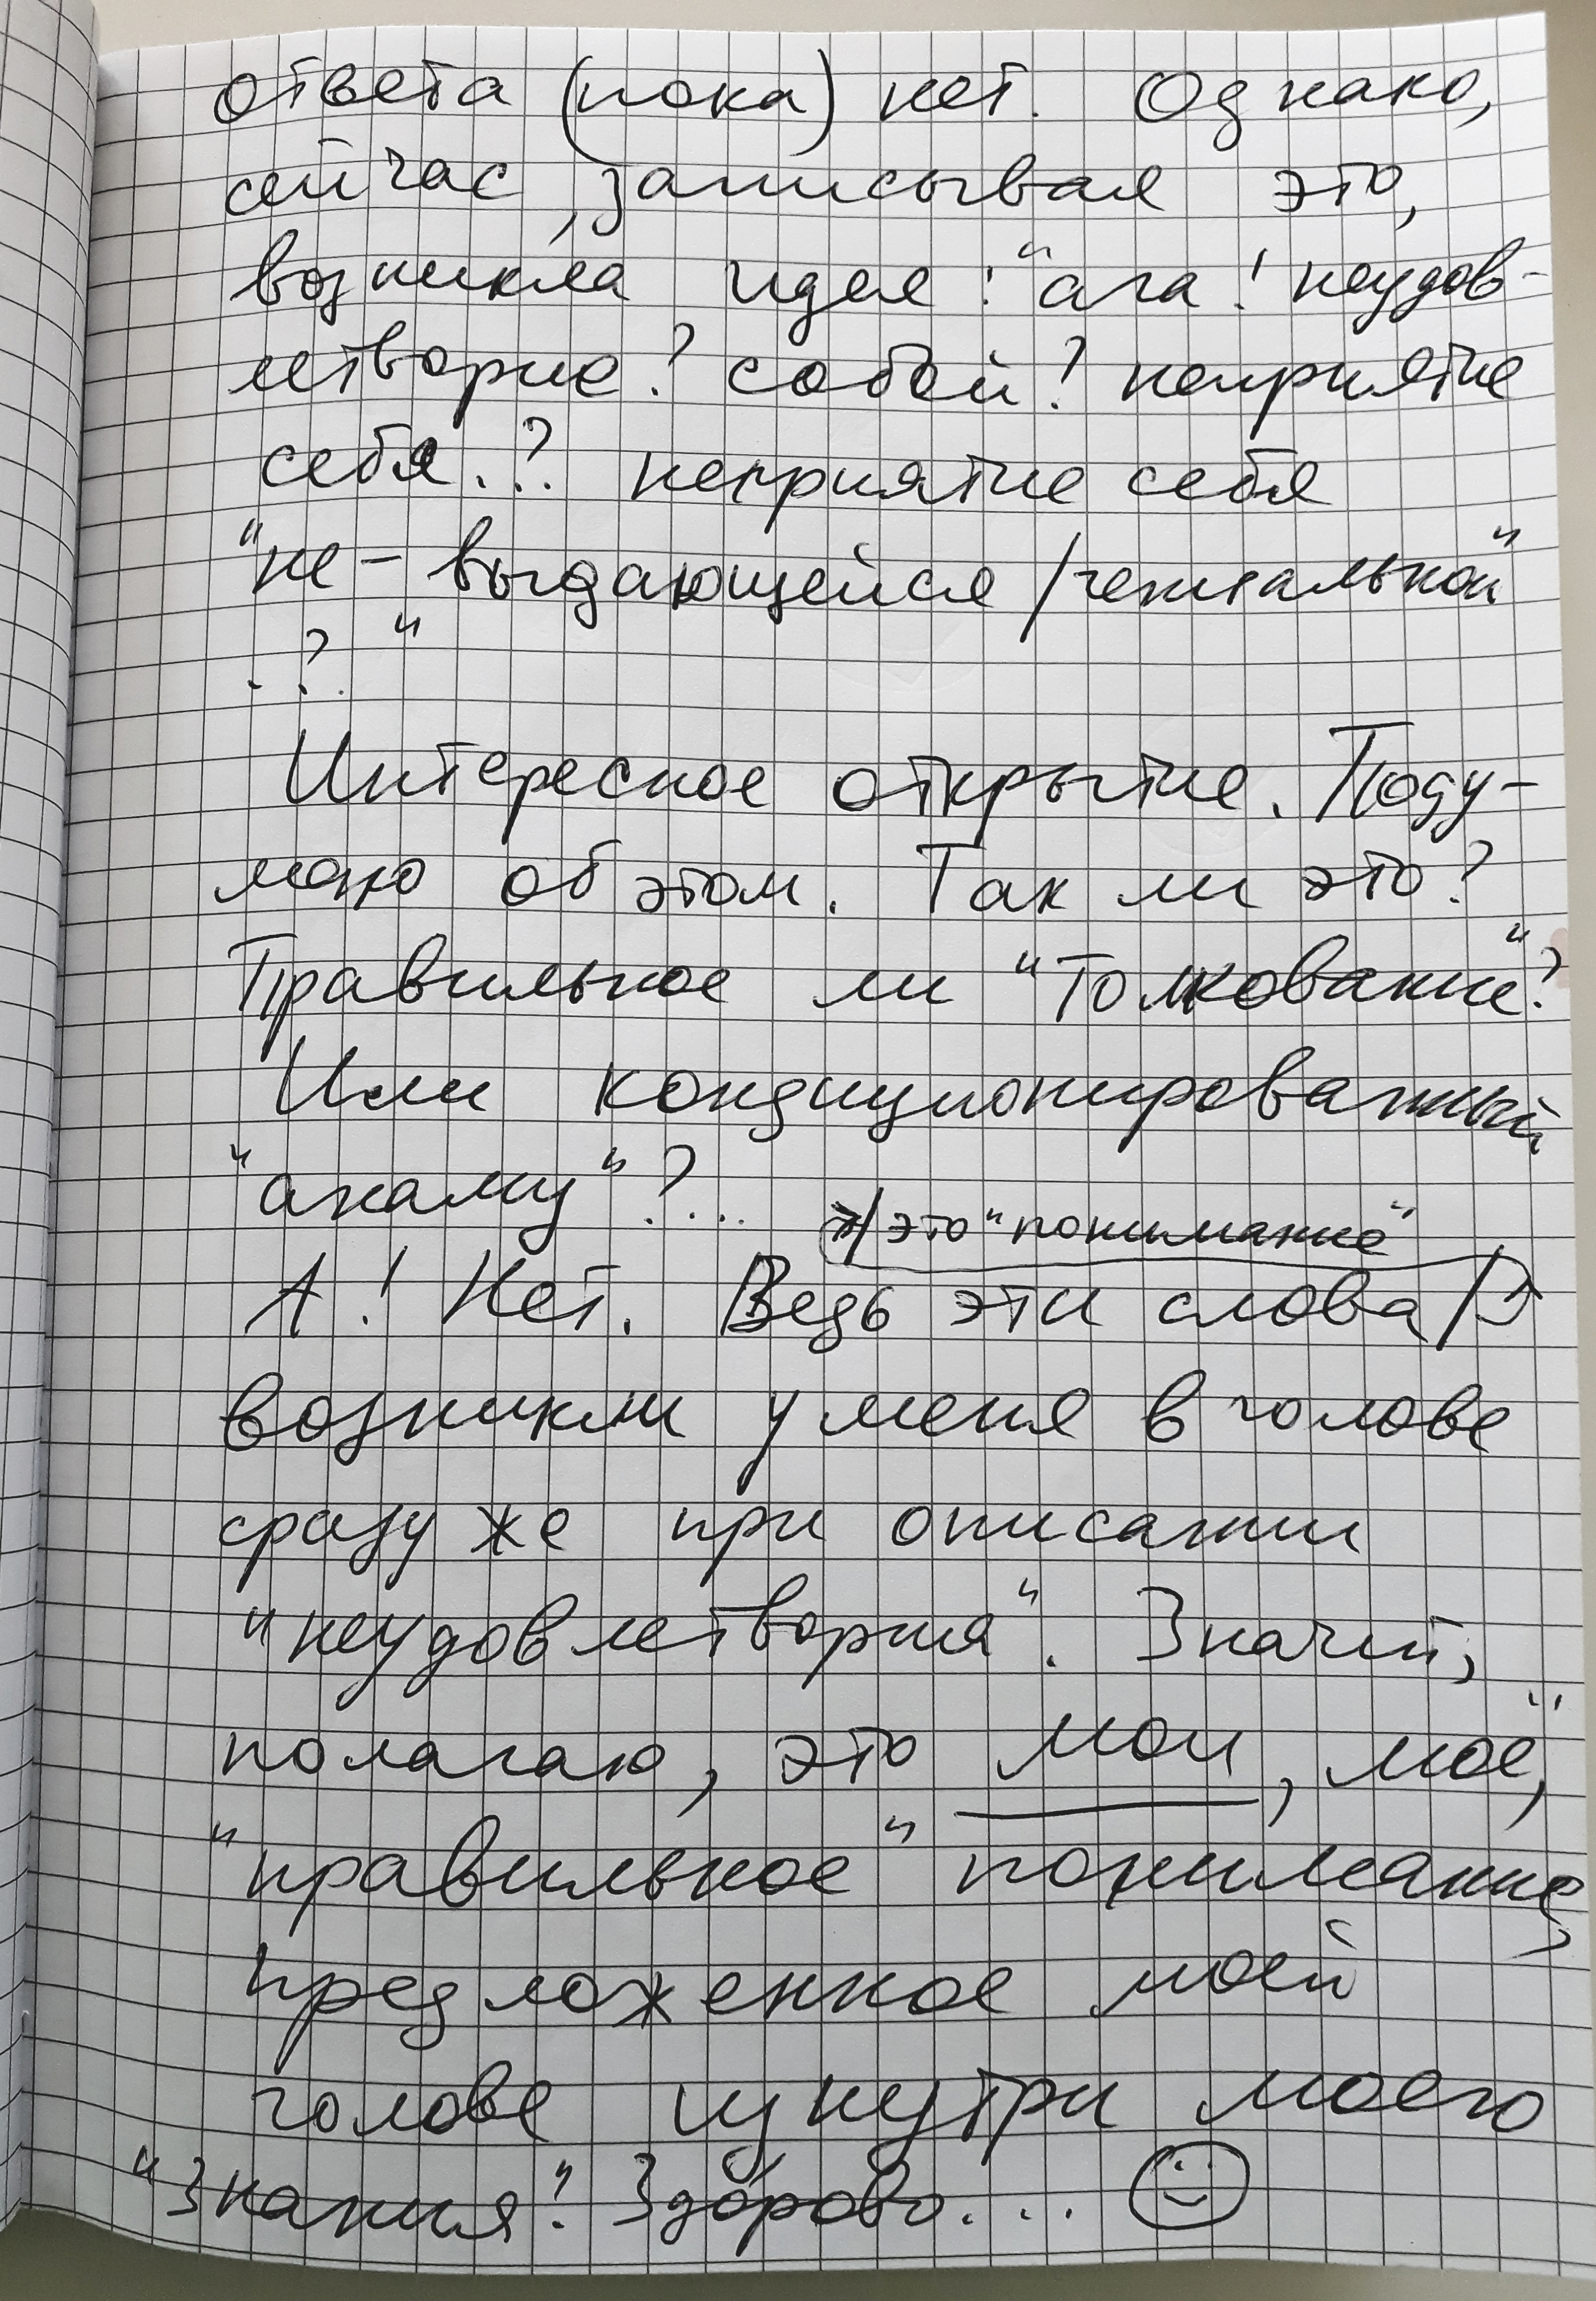 ответа (пока) нет. Однако,
сейчас, записывая это,
возникла идея: "ага! неудов-
летворие? собой? неприятие
себя..? неприятие себя
"не-выдающейся/гениальной"
..?."
Интересное открытие. Поду-
маю об этом. Так ли это?
Правильное ли "толкование"?
Или кондиционированный
"анамну"?...
/это "понимание"
А! Нет. Ведь эти слова/
возникли у меня в голове
сразу же при описании
"неудовлетвория". Значит,
полагаю, это мои, "моё",
"правильное" понимание,
предложенное моей
голове изнутри моего
"знания"! Здорово...